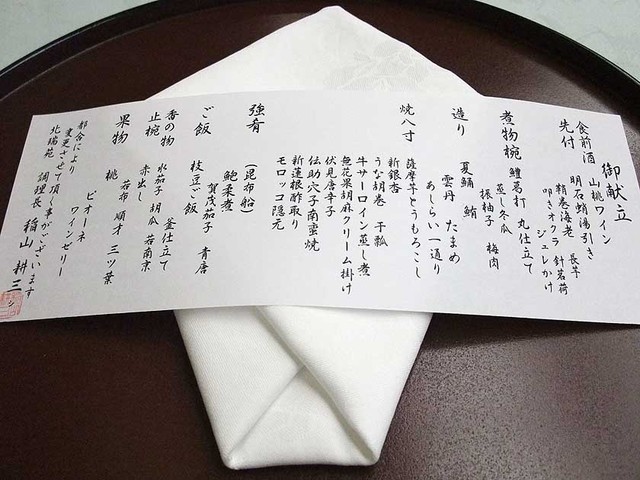 御献立
食前酒 山桃ワイン
先付 明石蛸湯引き 長芋
精巻海老 針茗荷
叩きオクラ ジュレかけ
煮物椀 鱧葛打 丸仕立て
蒸し冬瓜
振柚子 梅肉
造り 夏鰤 鮪
雲丹 たまめ
あしらい一通り
焼八寸 薩摩芋とうもろこし
新銀杏
うな胡巻 干瓢
牛サーロイン蒸し煮
無花果胡麻クリーム掛け
伏見唐辛子
伝助穴子南蛮焼
新蓮根酢取り
モロッコ隠元
強肴 (昆布船)
鮑柔煮
賀茂茄子 青唐
ご飯 枝豆ご飯 釜仕立て
香の物 水茄子 胡瓜 若南京
止椀 赤出し
若布 順才 三ツ葉
果物 桃 ピオーネ
ワインゼリー
都合により
変更させて頂く事がございます
北瑞苑 調理長 稲山 耕三